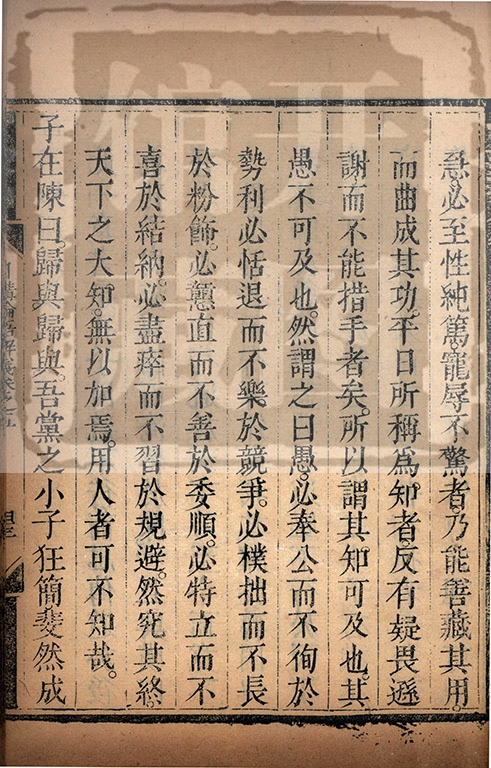 急必至性純篤寵辱不驚者乃能善藏其用。
而曲成其功。平日所稱為知者。反有疑畏遜
謝而不能措手者矣。所以謂其知可及也。其
愚不可及也。然謂之曰愚。必奉公而不徇於
勢利必恬退而不樂於競爭。必樸拙而不長
於粉飾。必戇直而不善於委順。必特立而不
喜於結納。必盡瘁而不習於規避。然究其終。
天下之大知。無以加焉。用人者可不知哉。
子在陳曰。歸與歸與。吾黨之小子狂簡斐然成